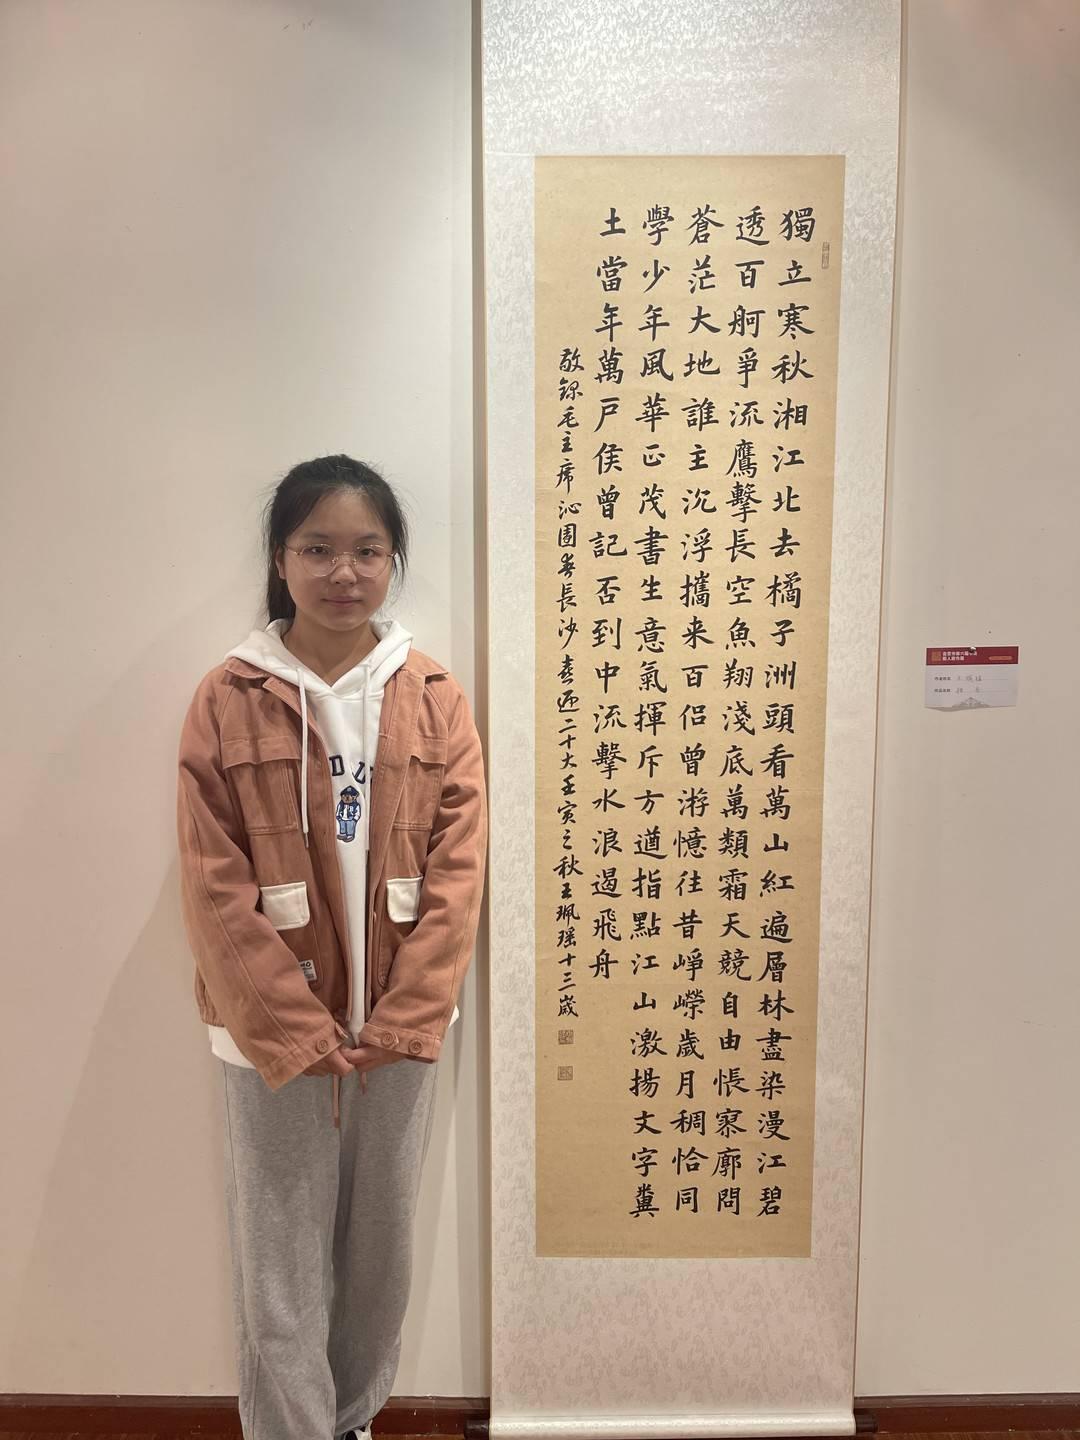 獨立寒秋湘江北去橘子洲頭看萬山紅遍層林盡染漫江碧
透百舸爭流鷹擊長空魚翔淺底萬類霜天競自由悵寥廓問
蒼茫大地誰主沉浮攜来百侶曾游憶往昔崢嶸歲月稠恰同
學少年風華正茂書生意氣揮斥方遒指點江山激揚文字糞
土當年萬戶侯曾記否到中流擊水浪遏飛舟
敬錄毛主席沁園春長沙喜迎二十大壬寅之秋王珮瑶十三歲
新人新作展
作者姓名 王珮瑶
作品名称